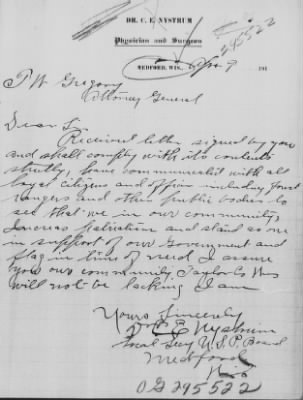 DR. C. E. NYSTRUM
Physician and Surgeon
295522
MEDFORD, WIS., Apr 9 191
T W Gregory
Attorney General
Dear Sir
Received letter signed by you
and shall comply with its contents
strictly, have communicated with all
loyal citizens and officers including forest
rangers and other public bodies to
see that we in our community,
increase Patriotism and stand as one
in support of our Government and
flag in time of need I assure
you our community, Taylor Co Wis
will not be lacking I am
Yours Sincerely
Dr C E Nystrum
Local Secy U.S.P. Board
Medford
Wis
OG 295522